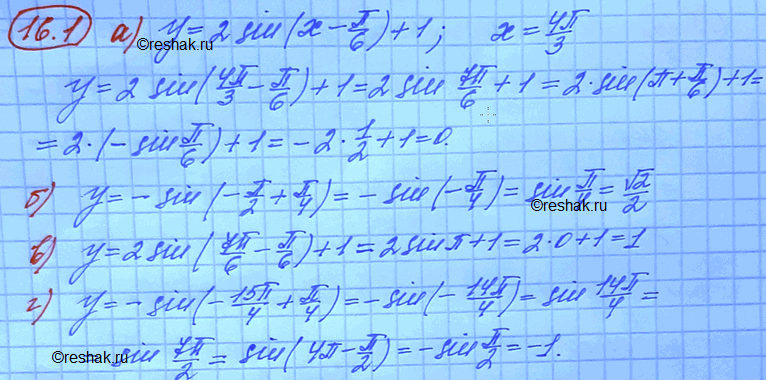 16.1 а) y = 2 sin(x − π/6) + 1; x = 4π/3
©reshak.ru
y = 2 sin(4π/3 − π/6) + 1 = 2 sin 7π/6 + 1 = 2·sin(π + π/6) + 1 =
= 2·(−sin π/6) + 1 = −2·1/2 + 1 = 0.
б) y = −sin(−π/2 + π/4) = −sin(−π/4) = sin π/4 = √2/2
©reshak.ru
в) y = 2 sin(7π/6 − π/6) + 1 = 2 sin π + 1 = 2·0 + 1 = 1
г) y = −sin(−15π/4 + π/4) = −sin(−14π/4) = sin 14π/4 =
sin 7π/2 = sin(4π − π/2) = −sin π/2 = −1.
©reshak.ru